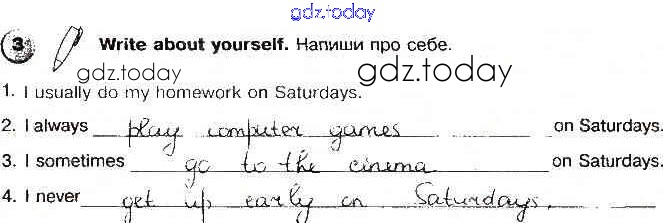 gdz.today
3 Write about yourself. Напиши про себе.
gdz.today gdz.today
1. I usually do my homework on Saturdays.
2. I always play computer games on Saturdays.
3. I sometimes go to the cinema on Saturdays.
4. I never get up early on Saturdays.